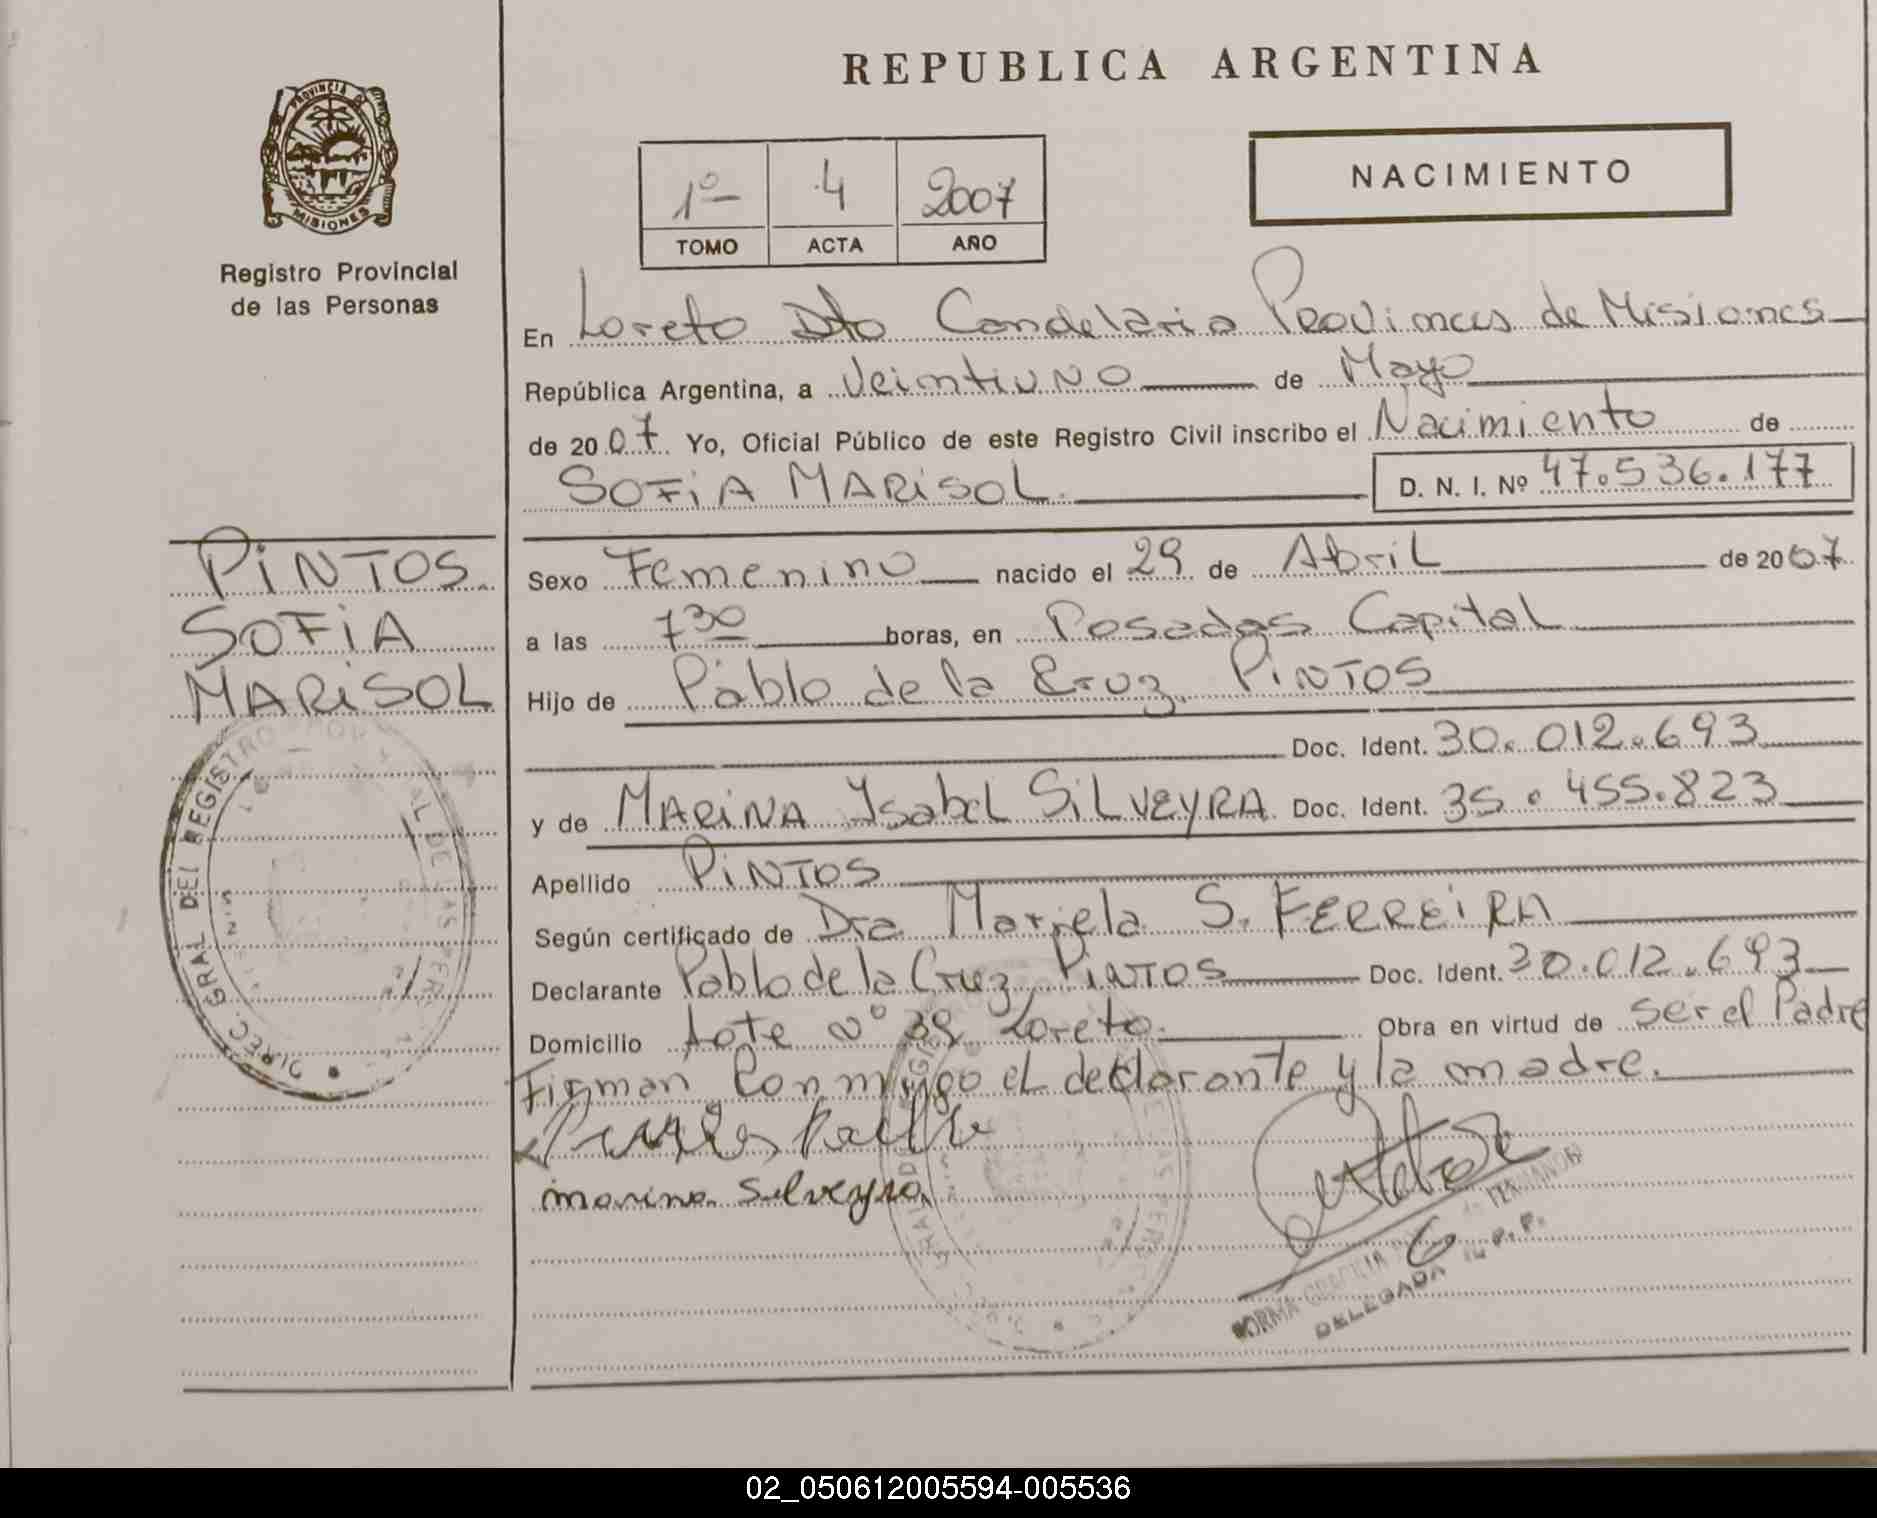 REPUBLICA ARGENTINA
PROVINCIA DE
MISIONES
Registro Provincial
de las Personas
1º 4 2007
TOMO ACTA AÑO
NACIMIENTO
En Loreto Dto Candelaria Provincias de Misiones
República Argentina, a Veintiuno de Mayo
de 2007 Yo, Oficial Público de este Registro Civil inscribo el Nacimiento de
SOFiA MARiSOL. D. N. I. Nº 47.536.177
PiNTOS
SOFiA
MARiSOL
Sexo Femenino nacido el 29 de Abril de 2007
a las 7 30 horas, en Posadas Capital
Hijo de Pablo de la Cruz PiNTOS
Doc. Ident. 30.012.693
y de MARiNA Ysabel SiLVEYRA Doc. Ident. 35.455.823
Apellido PiNTOS
Según certificado de Dra Mariela S. FERREiRA
Declarante Pablo de la Cruz PiNTOS Doc. Ident. 30.012.693
Domicilio Lote Nº 39 Loreto. Obra en virtud de ser el Padre
Firman Conmigo el declarante y la madre.
marina Silveyra
DIREC. GRAL DEL REGISTRO
DELEGADA R. P. P.
02_050612005594-005536